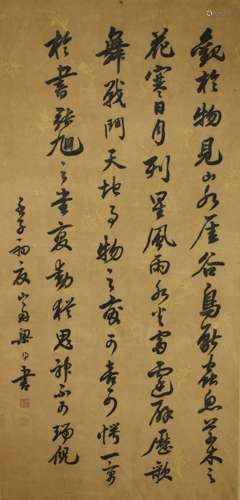 觀於物見山水崖谷鳥獸蟲魚草木之
花實日月列星風雨水火雷霆霹靂歌
舞戰鬥天地事物之變可喜可愕一寓
於書張旭之書變動猶鬼神不可端倪
壬子初夏山舟梁同書